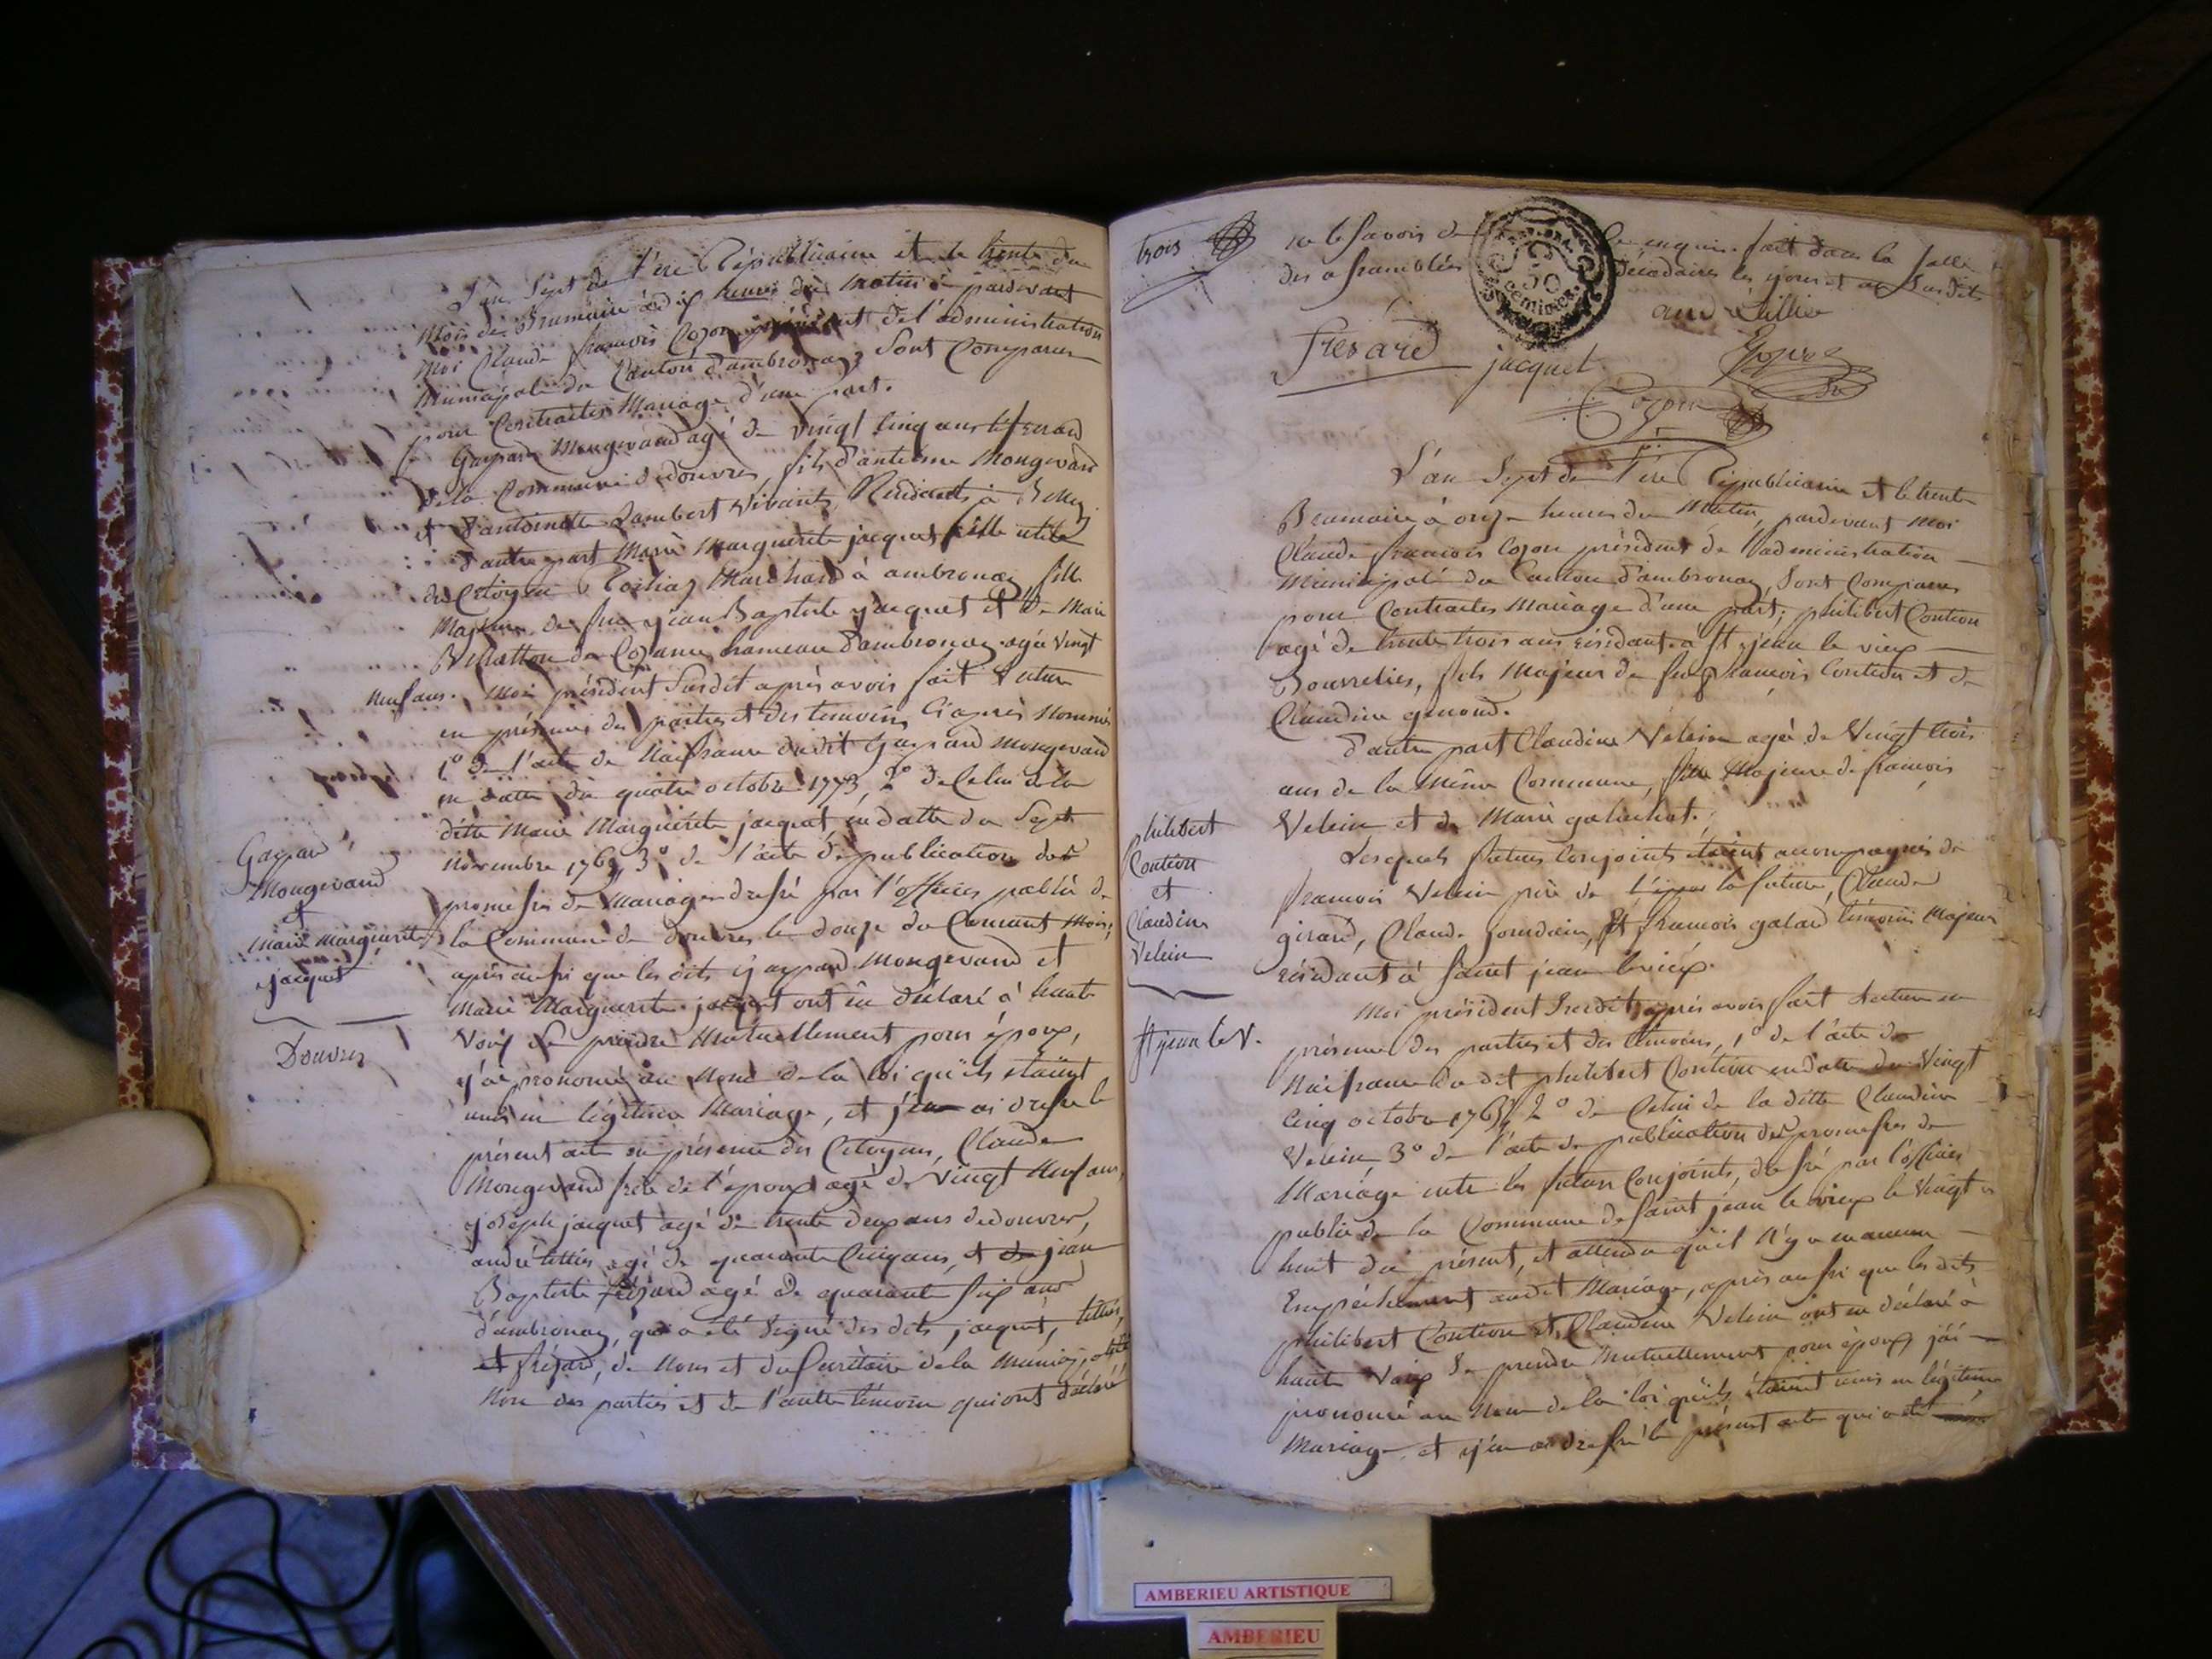 L'an Sept de l'ere Républicaine et le trente du
Mois de Brumaire à dix heures du matin pardevant
Moi Claude françois Cozon président de l'administration
Municipale du Canton d'ambronay, Sont Comparus
pour Contracter Mariage d'une part.
Gaspard Mongevand agé de vingt Cinq ans
de la Commune de douvres, fils d'antoine Mongevand
et d'antoinette Lambert vivants, Résidants à
d'autre part Marie Marguerite jacquet fille
du Citoyen Marchand à ambronay, fille
Majeure de feu jean Baptiste jacquet et de Marie
de Cozance hameau d'ambronay agée vingt
neuf ans. Moi président Susdit après avoir fait lecture
en présence des parties et des temoins Ci après Nommés
1º de l'acte de Naissance dudit Gaspard Mongevand
en datte du quatre octobre 1773, 2º de Celui de la
ditte Marie Marguerite jacquet en datte du Sept
Novembre 1769, 3º de l'acte de publication des
promesses de Mariage dressé par l'officier public de
la Commune de Douvres le douze du Courant Mois;
après aussi que les dits Gaspard Mongevand et
Marie Marguerite jacquet ont eu déclaré à haute
Voix Se prendre Mutuellement pour époux,
j'ai prononcé au Nom de la loi qu'ils étaient
unis en légitime Mariage, et j'en ai dressé le
présent acte en présence des Citoyens, Claude
Mongevand frère de l'époux agé de Vingt Neuf ans,
joseph jacquet agé de trente deux ans de douvres,
andré tillier agé de quarante Cinq ans, et de jean
Baptiste frésard agé de quarante Six ans
d'ambronay, qui a été Signé des dits jacquet, tillier,
et frésard, de Nous et du Secrétaire de la
Non des parties et de l'autre témoin qui ont déclaré
Gaspard
Mongevand
et
Marie Marguerite
jacquet
Douvres
trois
ne le Savoir de ce enquis. fait dans la Salle
des assemblées décadaires les jours et an Susdits
and tillier
fresard jacquet
Cozon
L'an Sept de l'ere Républicaine et le trente
Brumaire à onze heures du Matin, pardevant Moi
Claude françois Cozon président de l'administration
Municipale du Canton d'ambronay, Sont Comparus
pour Contracter Mariage d'une part; philibert Contion
agé de trente trois ans résidant à St jean le vieux
Bourrelier, fils Majeur de feu françois Contion et de
Claudine genoud.
d'autre part Claudine Velein agée de Vingt trois
ans de la Même Commune, fille Majeure de françois
Velein et de Marie
Lesquels futurs Conjoints étaient accompagnés de
françois Velein père de l'épou la future, Claude
girard, Claude jourdain, Et françois galand témoins Majeurs
résidant à Saint jean le vieux.
Moi président Susdit, après avoir fait lecture en
présence des parties et des témoins, 1º de l'acte de
Naissance dudit philibert Contion en date du Vingt
Cinq octobre 1765, 2º de Celui de la ditte Claudine
Velein 3º de l'acte de publication des promesses de
Mariage entre les futurs Conjoints, dressé par l'officier
public de la Commune de Saint jean le vieux le Vingt
huit du présent, et attendu qu'il N'y a eu aucun
Empêchement audit Mariage, après aussi que les dits
philibert Contion et Claudine Velein ont eu déclaré à
haute Voix Se prendre Mutuellement pour époux j'ai
prononcé au Nom de la loi qu'ils étaient unis en légitime
Mariage, et j'en ai dressé le présent acte qui a été
philibert
Contion
et
Claudine
Velein
St jean le V.
AMBERIEU ARTISTIQUE
AMBERIEU